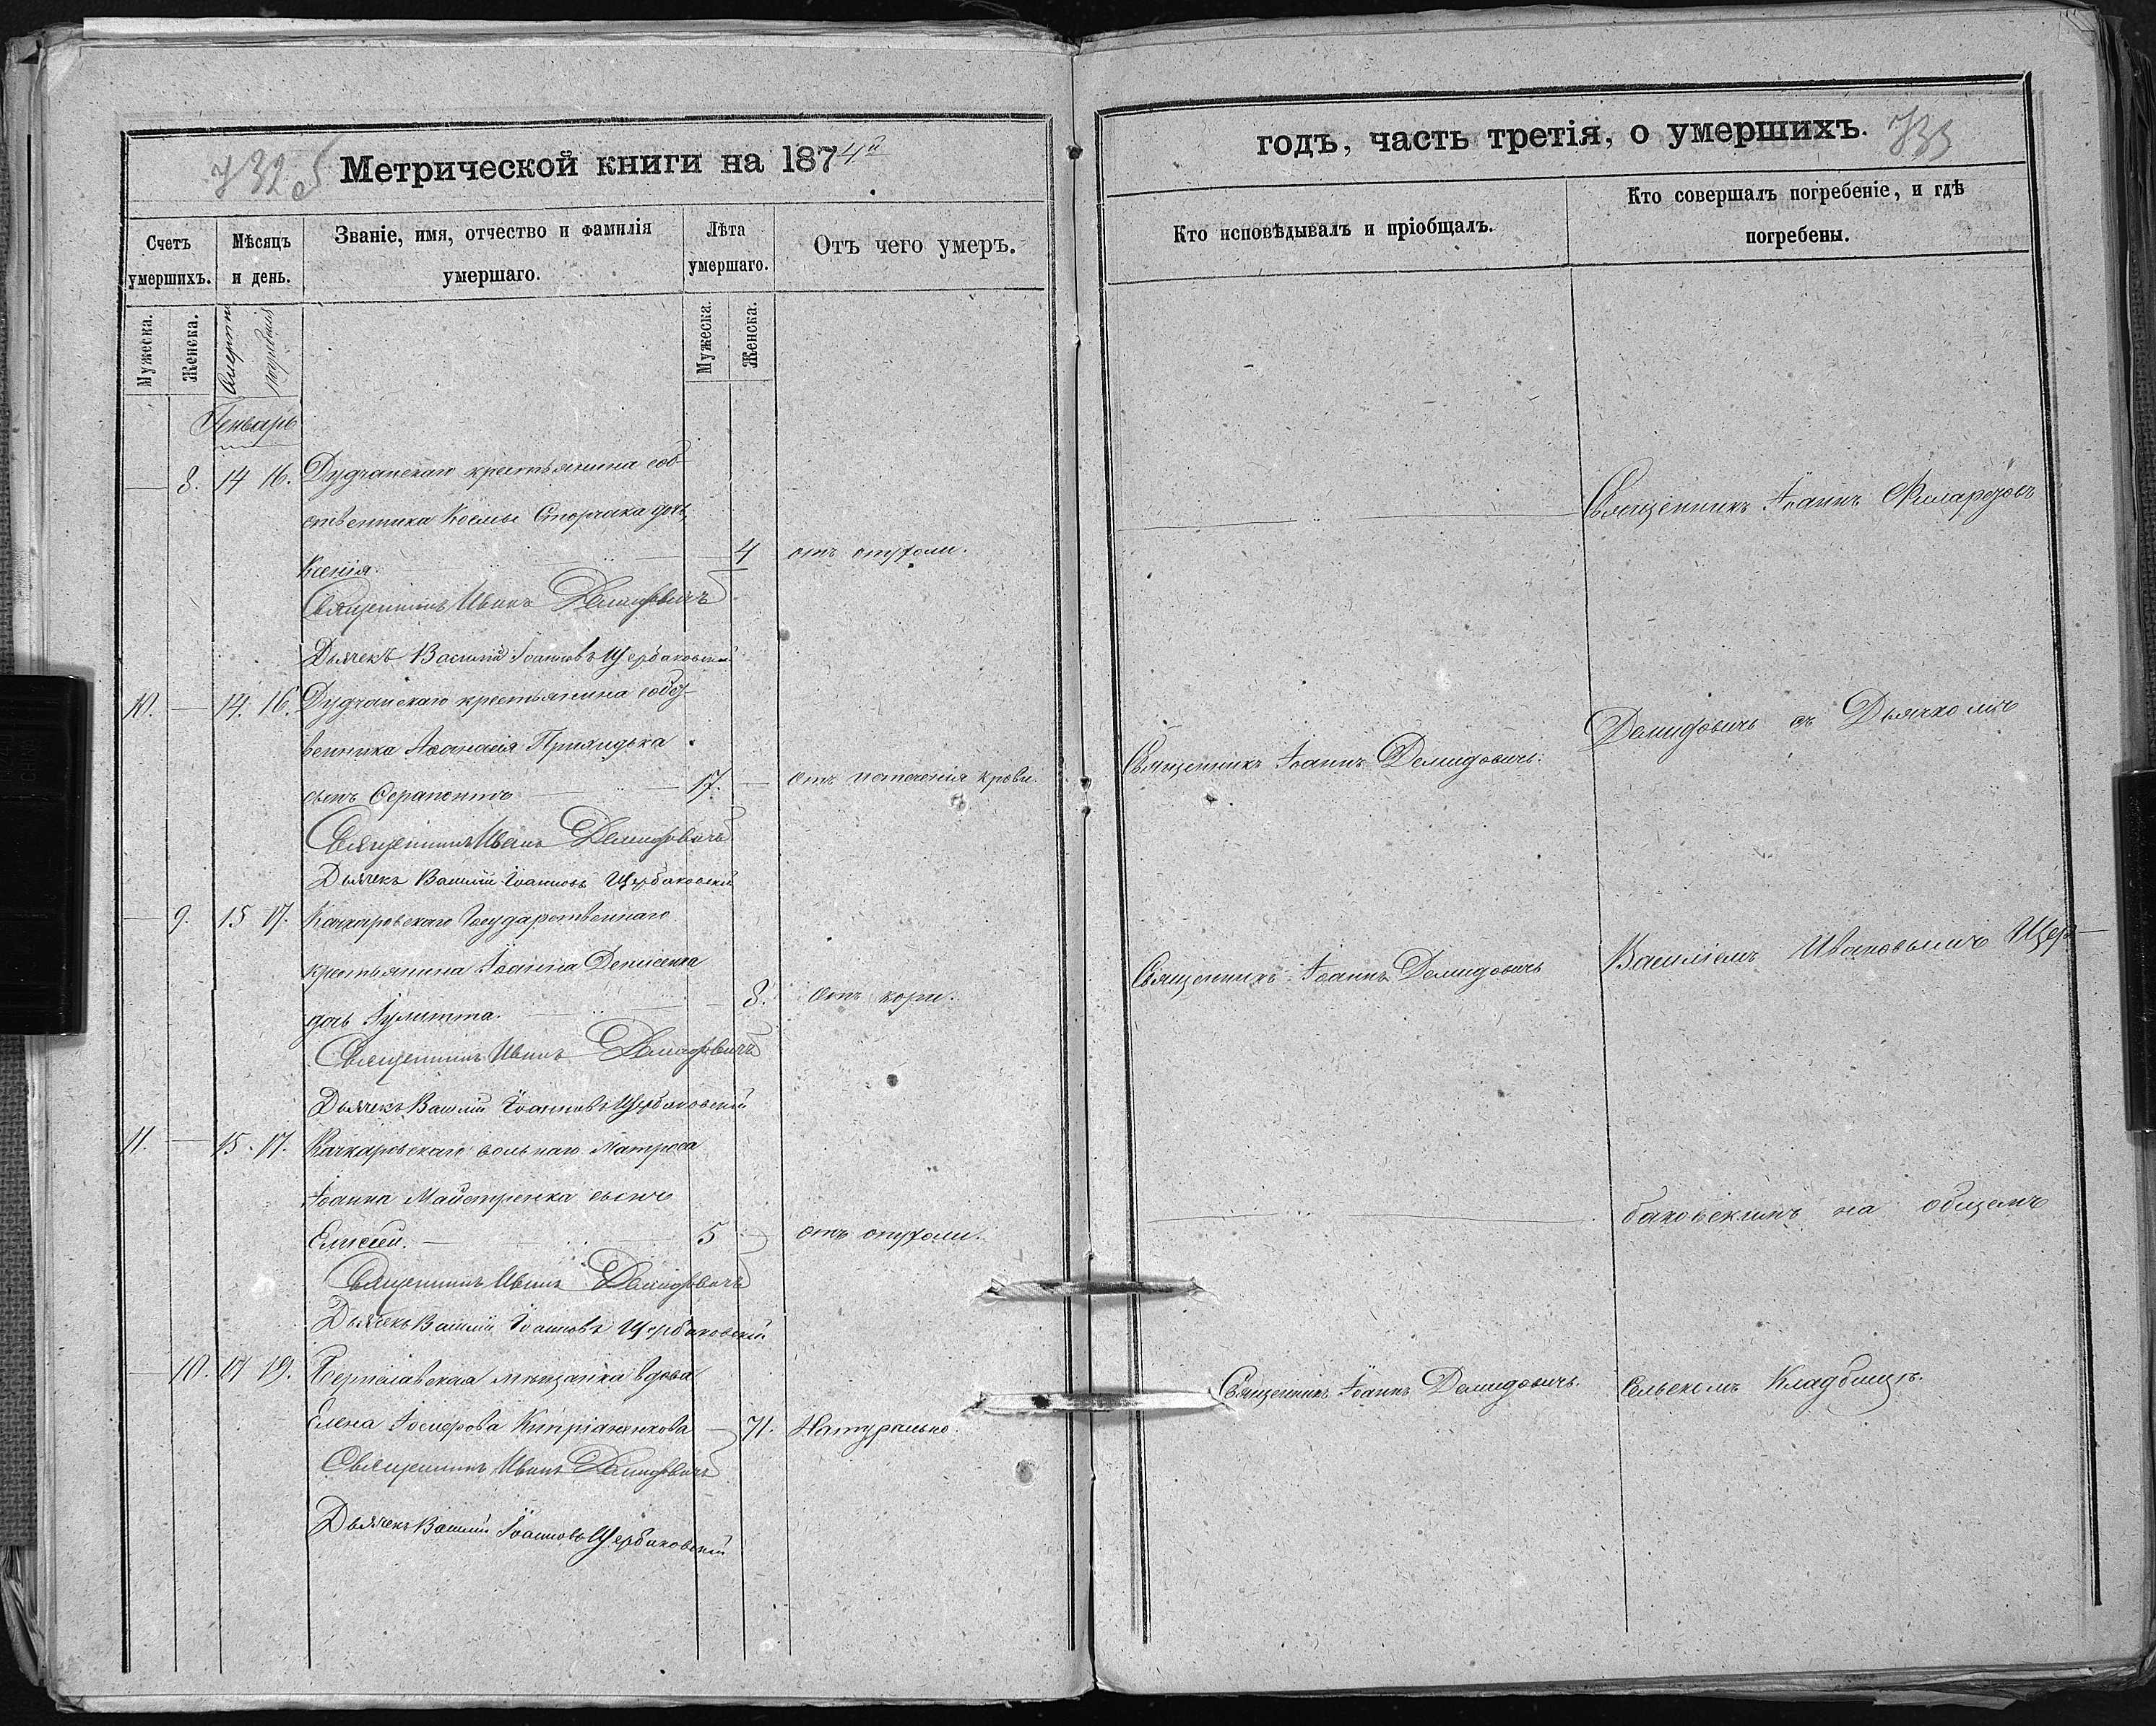 732
Метрической книги на 1874й
Счетъ умершихъ.
Мѣсяцъ и день.
Званіе, имя, отчество и фамилія умершаго.
Лѣта умершаго.
Отъ чего умеръ.
Мужеска.
Женска.
смерти
погребенія
Мужеска.
Женска.
Генварь
8. 14 16. Дудчанскаго крестьянина соб-
ственника Космы Сторчака дочь
Ксенія. 4 отъ опухоли.
Священникъ Иванъ Демидовичъ
Дьячекъ Василій Іоанновъ Щербаковскій
10. — 14. 16. Дудчанскаго крестьянина собст-
венника Аѳанасія
сынъ Серапіонъ 17. — отъ истеченія крови.
Священникъ Иванъ Демидовичъ
Дьячекъ Василій Іоанновъ Щербаковскій
— 9. 15 17. Качкаровскаго Государственнаго
крестьянина Іоанна Денисенка
дочь Іулитта. — 8. отъ кори.
Священникъ Иванъ Демидовичъ
Дьячекъ Василій Іоанновъ Щербаковскій
11. — 15. 17. Качкаровскаго вольнаго матроса
Іоанна Майстренка сынъ
Елисей. — 5 отъ опухоли.
Священникъ Иванъ Демидовичъ
Дьячекъ Василій Іоанновъ Щербаковскій
— 10. 17 19. Бериславская мѣщанка вдова
Елена Іосифова Кипріяненкова — 71. Натурально.
Священникъ Иванъ Демидовичъ
Дьячекъ Василій Іоанновъ Щербаковскій
годъ, часть третія, о умершихъ.
733
Кто исповѣдывалъ и пріобщалъ.
Кто совершалъ погребеніе, и гдѣ погребены.
Священникъ Іоаннъ
Священникъ Іоаннъ Демидовичъ.
Демидовичъ съ Дьячкомъ
Священникъ Іоаннъ Демидовичъ
Василіемъ Ивановымъ Щер-
баковскимъ на общемъ
Священникъ Іоаннъ Демидовичъ.
сельскомъ Кладбищѣ.